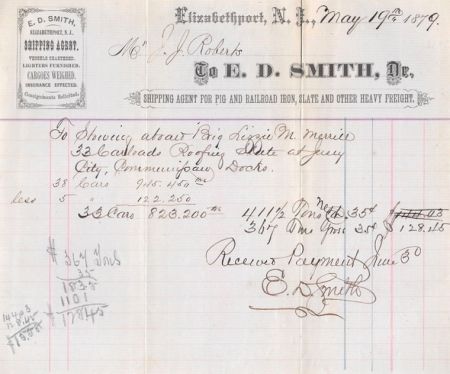 E. D. SMITH,
ELIZABETHPORT, N. J.,
SHIPPING AGENT.
VESSELS CHARTERED.
LIGHTERS FURNISHED.
CARGOES WEIGHED.
INSURANCE EFFECTED.
Consignments Solicited.
Elizabethport, N. J., May 19th 1879.
Mr J. J. Roberts
To E. D. SMITH, Dr.
SHIPPING AGENT FOR PIG AND RAILROAD IRON, SLATE AND OTHER HEAVY FREIGHT.
To Stowing aboard Brig Lizzie M. Merrill
33 Carloads Roofing Slate at Jersey
City, Communipaw Docks.
38 Cars 945.450
less 5 " 122.250
33 Cars 823.200 411 1/2 Tons net 35¢ 144.03
367 Tons Gross 35¢ 128.45
Received Payment June 3d
E. D. Smith
367 Tons
35
1835
1101
$128.45
144.03
128.45
$15.58